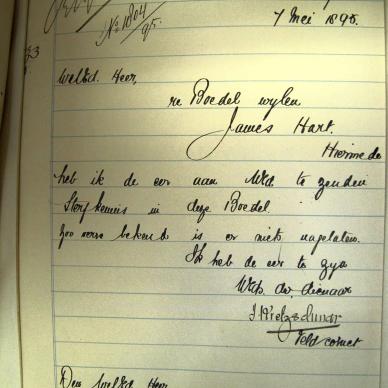 No 1804/95.
7 Mei 1895.
WelEd. Heer,
re Boedel wylen
James Hart.
Hierme de
heb ik de eer aan UEd. te zenden
Sterf kennis in deze Boedel.
Zoo verre bekend is er niets nagelaten.
Ik heb de eer te zyn
UEds. dw. dienaar
Veld cornet
Den WelEd. Heer